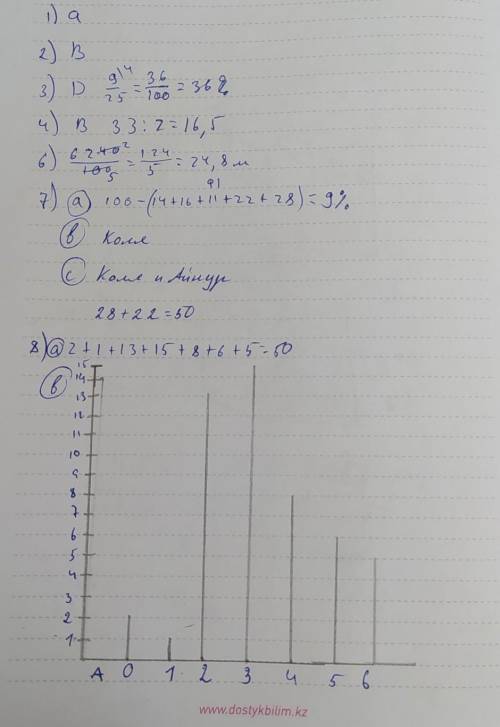 1) a
2) B
3) D 9\4/25 = 36/100 = 36%
4) B 33 : 2 = 16,5
6) 62 40 2/100 5 = 124/5 = 24,8 м
91
7) а) 100 - (14+16+11+22+28) = 9%
в) Коля
с) Коля и Айнур
28+22=50
8) а) 2+1+13+15+8+6+5=50
в)
15
14
13
12
11
10
9
8
7
6
5
4
3
2
1
A 0 1 2 3 4 5 6
www.dostykbilim.kz